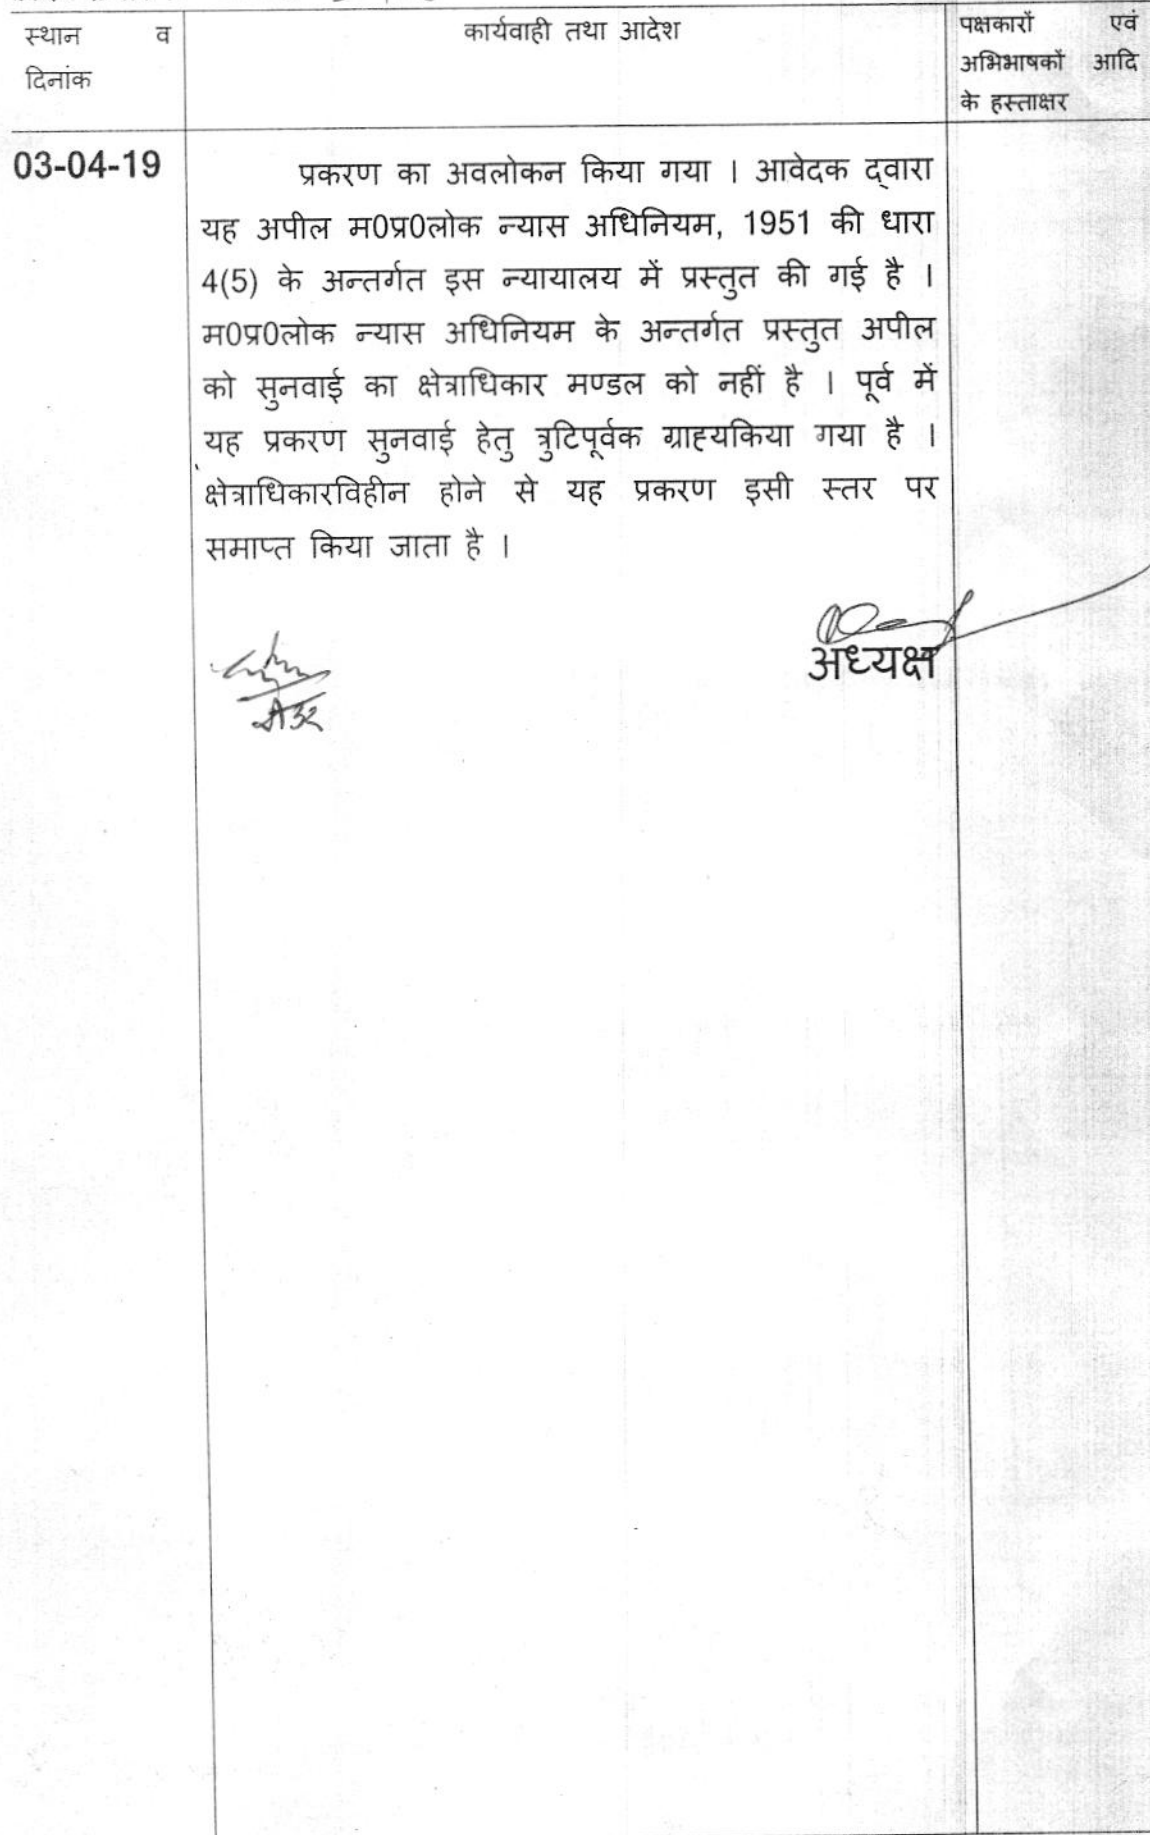 स्थान व
दिनांक
कार्यवाही तथा आदेश
पक्षकारों एवं
अभिभाषकों आदि
के हस्ताक्षर
03-04-19
प्रकरण का अवलोकन किया गया । आवेदक द्वारा
यह अपील म0प्र0लोक न्यास अधिनियम, 1951 की धारा
4(5) के अन्तर्गत इस न्यायालय में प्रस्तुत की गई है ।
म0प्र0लोक न्यास अधिनियम के अन्तर्गत प्रस्तुत अपील
को सुनवाई का क्षेत्राधिकार मण्डल को नहीं है । पूर्व में
यह प्रकरण सुनवाई हेतु त्रुटिपूर्वक ग्राह्यकिया गया है ।
क्षेत्राधिकारविहीन होने से यह प्रकरण इसी स्तर पर
समाप्त किया जाता है ।
अध्यक्ष